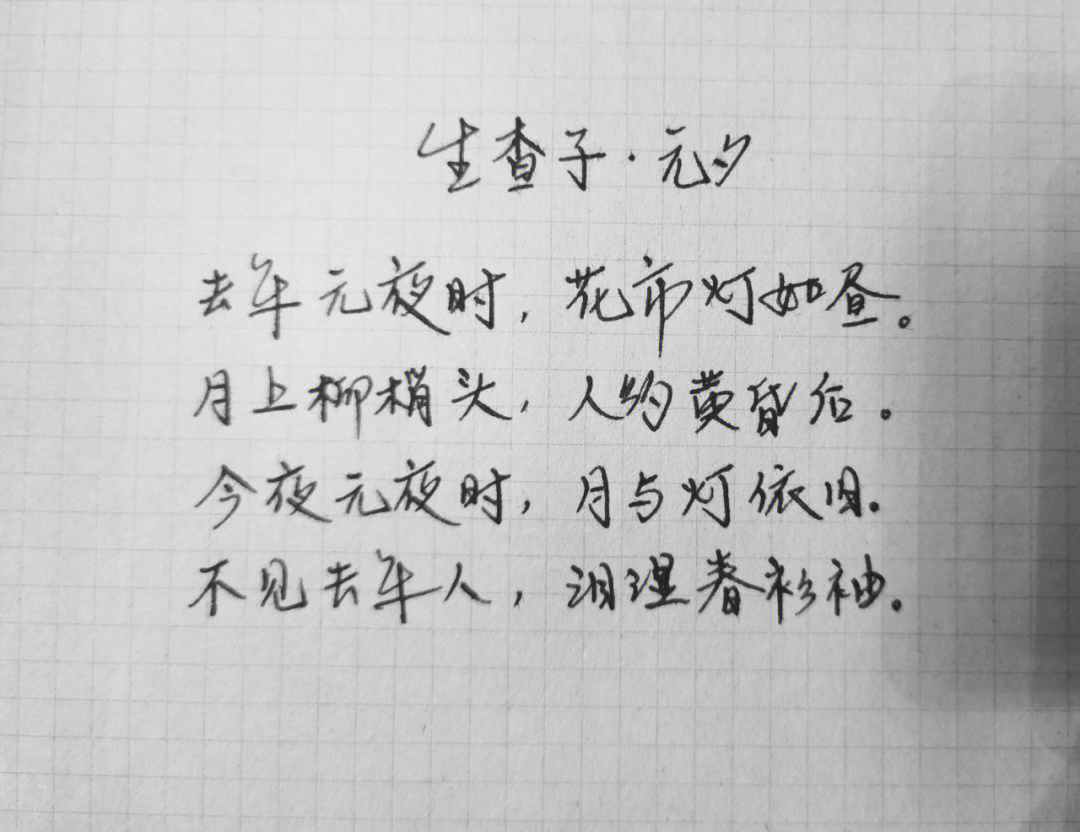 生查子·元夕
去年元夜时，花市灯如昼。
月上柳梢头，人约黄昏后。
今夜元夜时，月与灯依旧.
不见去年人，泪湿春衫袖.